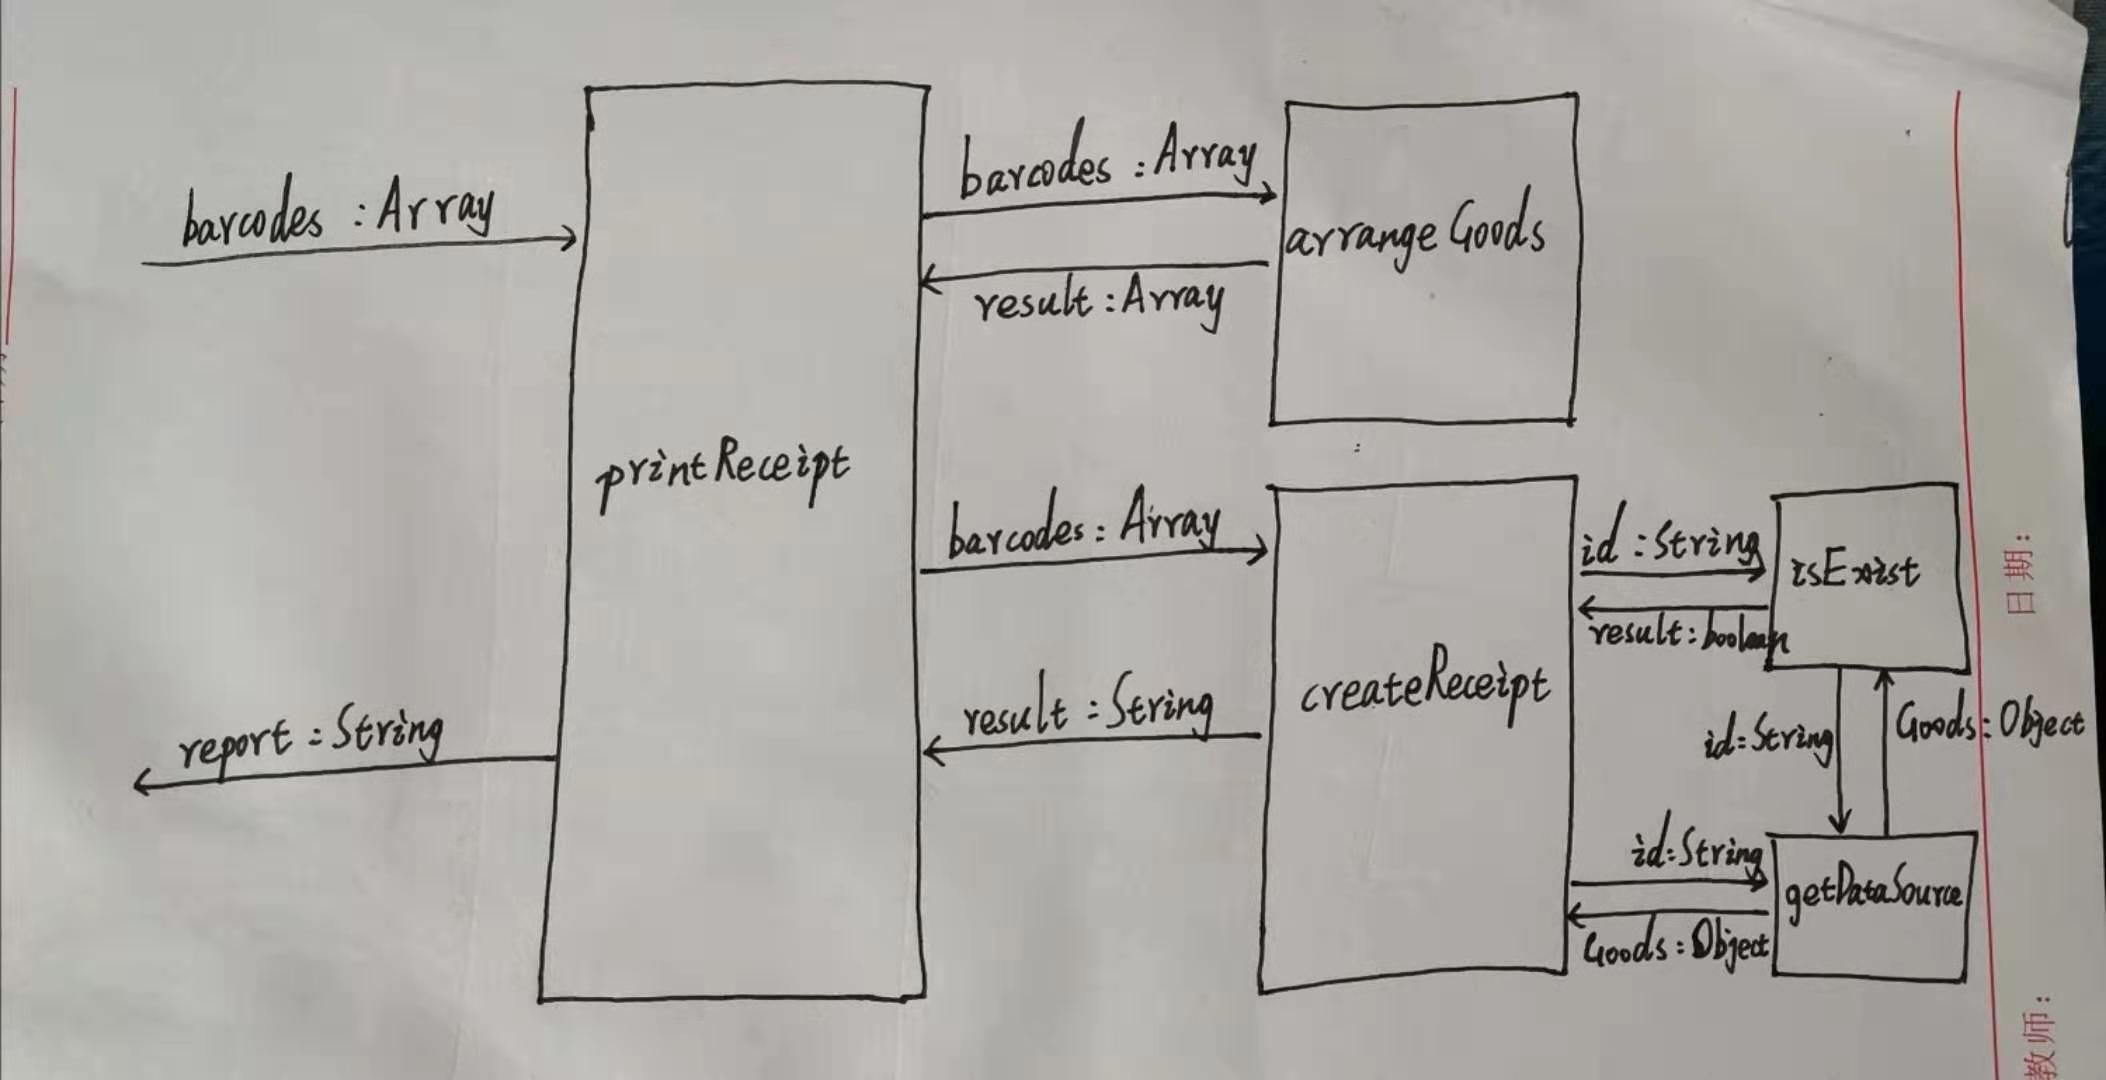 barcodes : Array
printReceipt
report : String
barcodes : Array
result : Array
arrangeGoods
barcodes : Array
result : String
createReceipt
id : String
result : boolean
isExist
id : String
Goods : Object
id : String
Goods : Object
getDataSource
日期：
教师：